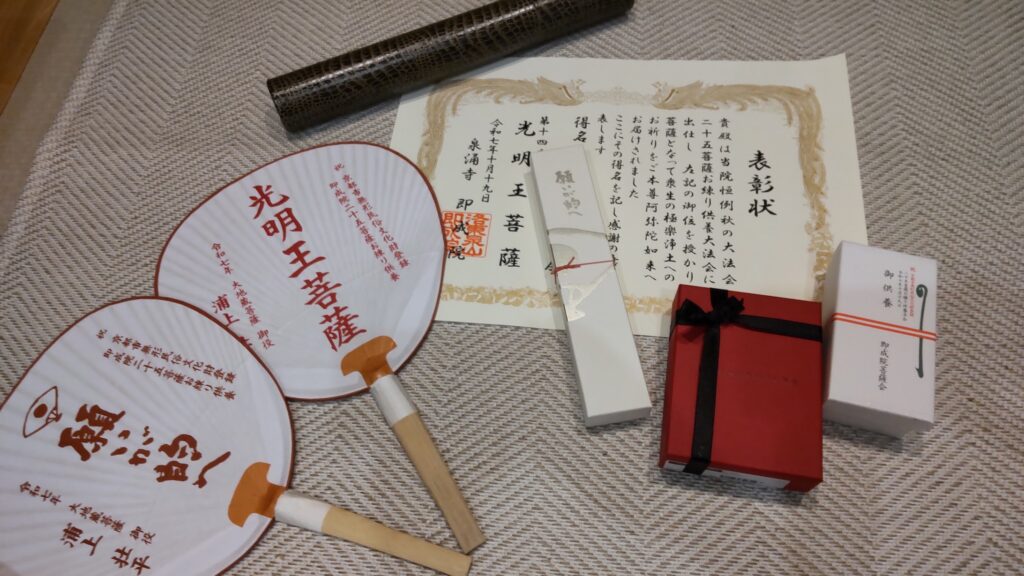 表彰状
貴殿は当院恒例秋の大法会
二十五菩薩お練り供養大法会に
出仕し 左記の御位を授かり
菩薩となって衆生の極楽浄土への
お祈りをご本尊阿弥陀如来へ
お届けされました
ここにその得名を記し感謝の
表します
得名
第十四
光明王菩薩
令和七年十月十九日
泉涌寺 即成院
願いが的へ
御供養
即成院菩薩会
祝 京都市無形民俗文化財登録
即成院二十五菩薩練り供養
光明王菩薩
令和七年 大地蔵菩薩 御役
浦上
祝 京都市無形民俗文化財登録
即成院二十五菩薩お練り供養
願いが的へ
令和七年 大地蔵菩薩 御役
浦上 壮平